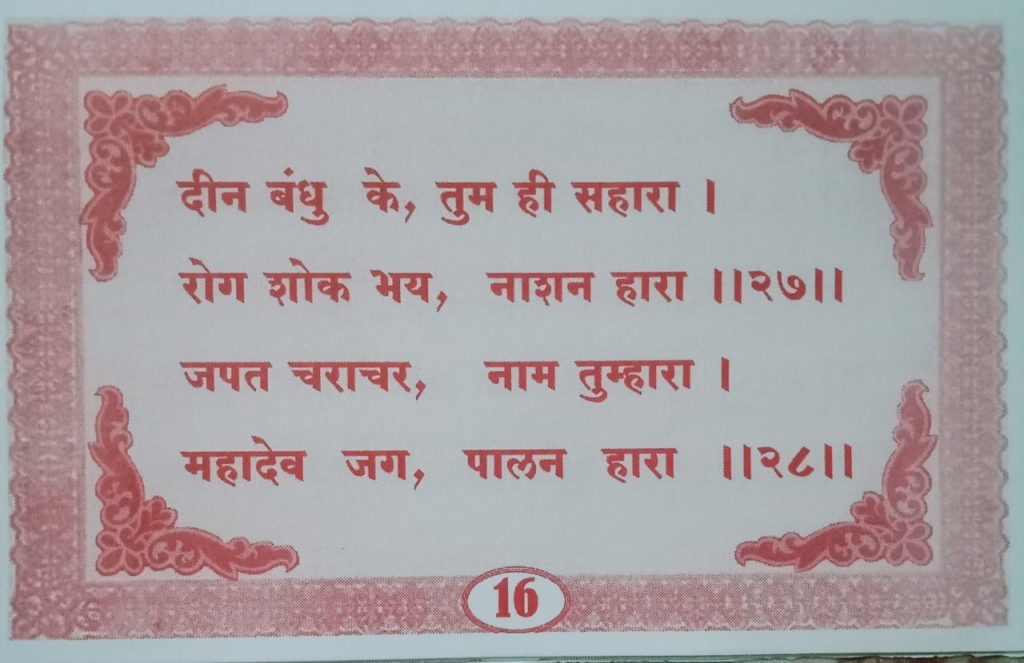 दीन बंधु के, तुम ही सहारा ।
रोग शोक भय, नाशन हारा ।।२७।।
जपत चराचर, नाम तुम्हारा ।
महादेव जग, पालन हारा ।।२८।।
16